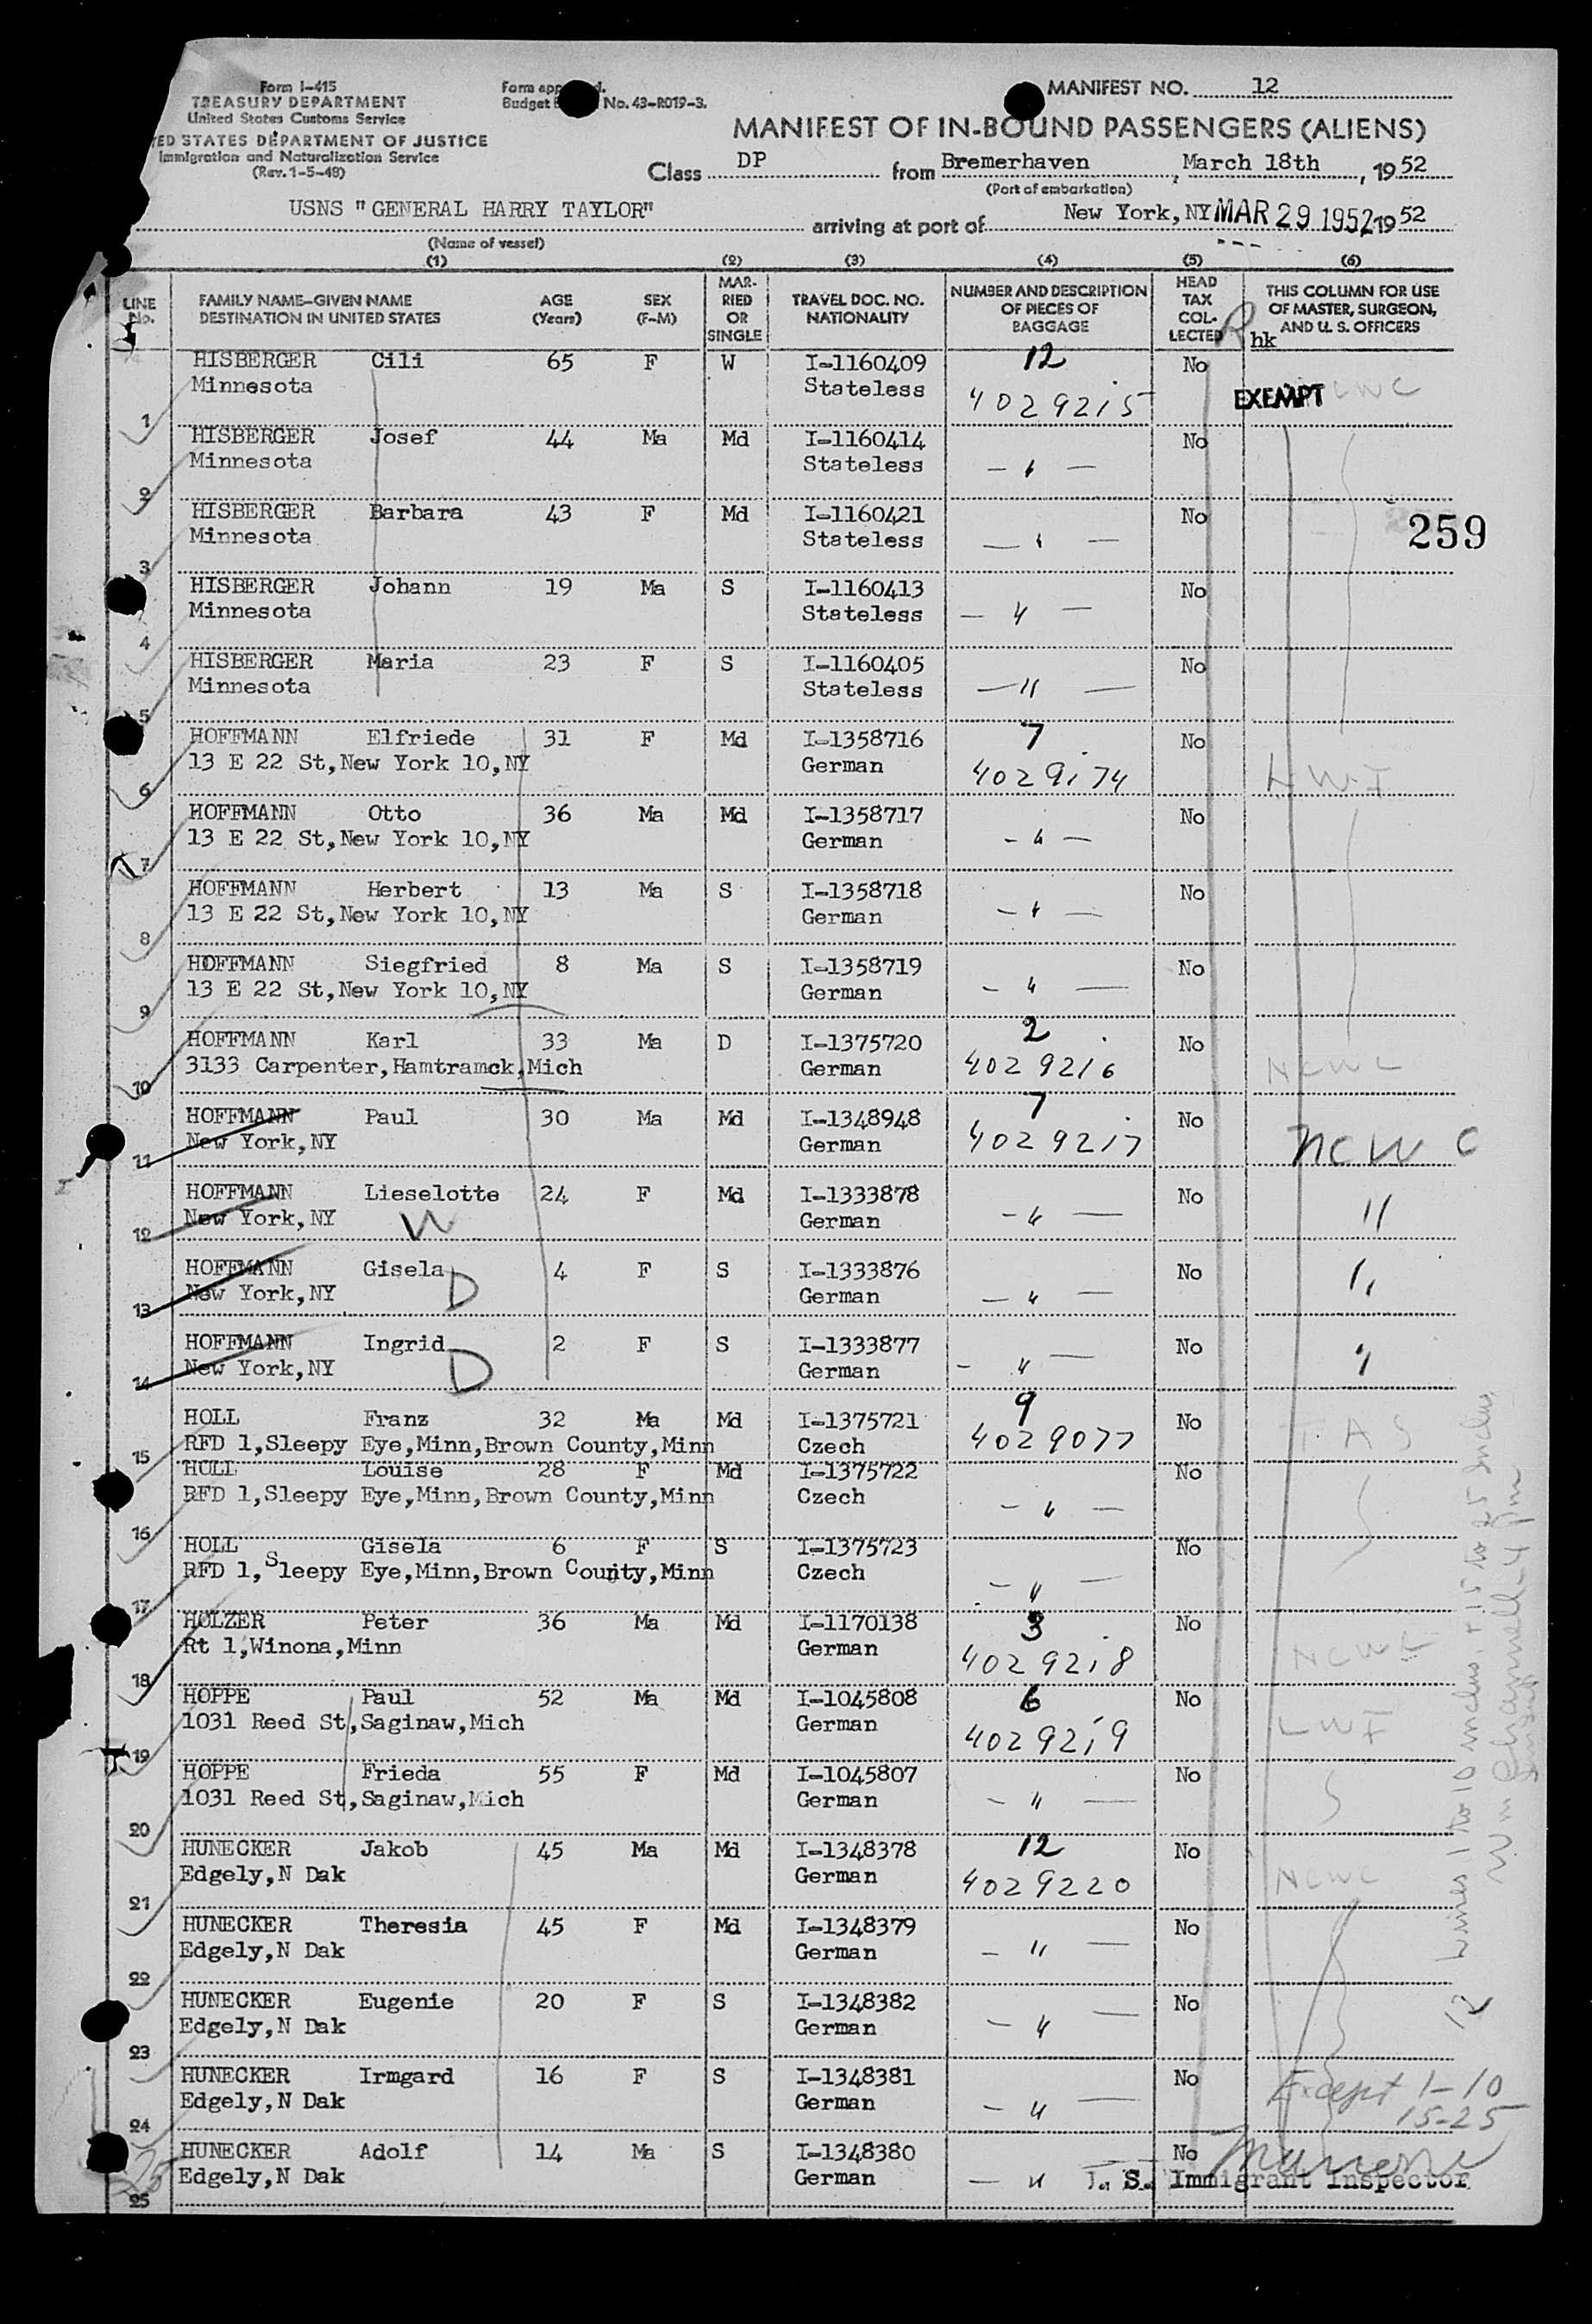 Form I-415
TREASURY DEPARTMENT
United States Customs Service
TED STATES DEPARTMENT OF JUSTICE
Immigration and Naturalization Service
(Rev. 1-5-48)
Form app d.
Budget No. 43-R019-3.
MANIFEST NO. 12
MANIFEST OF IN-BOUND PASSENGERS (ALIENS)
Class DP from Bremerhaven, March 18th, 19 52
(Port of embarkation)
USNS "GENERAL HARRY TAYLOR" arriving at port of New York, NY MAR 29 1952 19 52
(Name of vessel)
(1) (2) (3) (4) (5) (6)
LINE No. FAMILY NAME-GIVEN NAME DESTINATION IN UNITED STATES AGE (Years) SEX (F-M) MARRIED OR SINGLE TRAVEL DOC. NO. NATIONALITY NUMBER AND DESCRIPTION OF PIECES OF BAGGAGE HEAD TAX COLLECTED THIS COLUMN FOR USE OF MASTER, SURGEON, AND U. S. OFFICERS
hk
HISBERGER Cili 65 F W I-1160409 12 No
1 Minnesota Stateless 4029215 EXEMPT
HISBERGER Josef 44 Ma Md I-1160414 No
2 Minnesota Stateless — " —
HISBERGER Barbara 43 F Md I-1160421 No
3 Minnesota Stateless — " —
259
HISBERGER Johann 19 Ma S I-1160413 No
4 Minnesota Stateless — " —
HISBERGER Maria 23 F S I-1160405 No
5 Minnesota Stateless — " —
HOFFMANN Elfriede 31 F Md I-1358716 7 No
6 13 E 22 St,New York 10,NY German 4029174 LWF
HOFFMANN Otto 36 Ma Md I-1358717 No
7 13 E 22 St,New York 10,NY German — " —
HOFFMANN Herbert 13 Ma S I-1358718 No
8 13 E 22 St,New York 10,NY German — " —
HOFFMANN Siegfried 8 Ma S I-1358719 No
9 13 E 22 St,New York 10,NY German — " —
HOFFMANN Karl 33 Ma D I-1375720 2 No
10 3133 Carpenter,Hamtramck,Mich German 4029216 NCWC
HOFFMANN Paul 30 Ma Md I-1348948 7 No
11 New York,NY German 4029217 NCWC
HOFFMANN Lieselotte 24 F Md I-1333878 No
12 New York,NY W German — " — "
HOFFMANN Gisela 4 F S I-1333876 No
13 New York,NY D German — " — "
HOFFMANN Ingrid 2 F S I-1333877 No
14 New York,NY D German — " — "
HOLL Franz 32 Ma Md I-1375721 9 No
15 RFD 1,Sleepy Eye,Minn,Brown County,Minn Czech 4029077 TAS
HOLL Louise 28 F Md I-1375722 No
16 RFD 1,Sleepy Eye,Minn,Brown County,Minn Czech — " —
HOLL Gisela 6 F S I-1375723 No
17 RFD 1,Sleepy Eye,Minn,Brown County,Minn Czech — " —
HOLZER Peter 36 Ma Md I-1170138 3 No
18 Rt 1,Winona,Minn German 4029218 NCWC
HOPPE Paul 52 Ma Md I-1045808 6 No
19 1031 Reed St,Saginaw,Mich German 4029219 LWF
HOPPE Frieda 55 F Md I-1045807 No
20 1031 Reed St,Saginaw,Mich German — " —
HUNECKER Jakob 45 Ma Md I-1348378 12 No
21 Edgely,N Dak German 4029220 NCWC
HUNECKER Theresia 45 F Md I-1348379 No
22 Edgely,N Dak German — " —
HUNECKER Eugenie 20 F S I-1348382 No
23 Edgely,N Dak German — " —
HUNECKER Irmgard 16 F S I-1348381 No
24 Edgely,N Dak German — " — Except 1-10
15-25
HUNECKER Adolf 14 Ma S I-1348380 No
25 Edgely,N Dak German — " — U. S. Immigrant Inspector
Lines 1 to 10 inclus + 15 to 25 Inclus